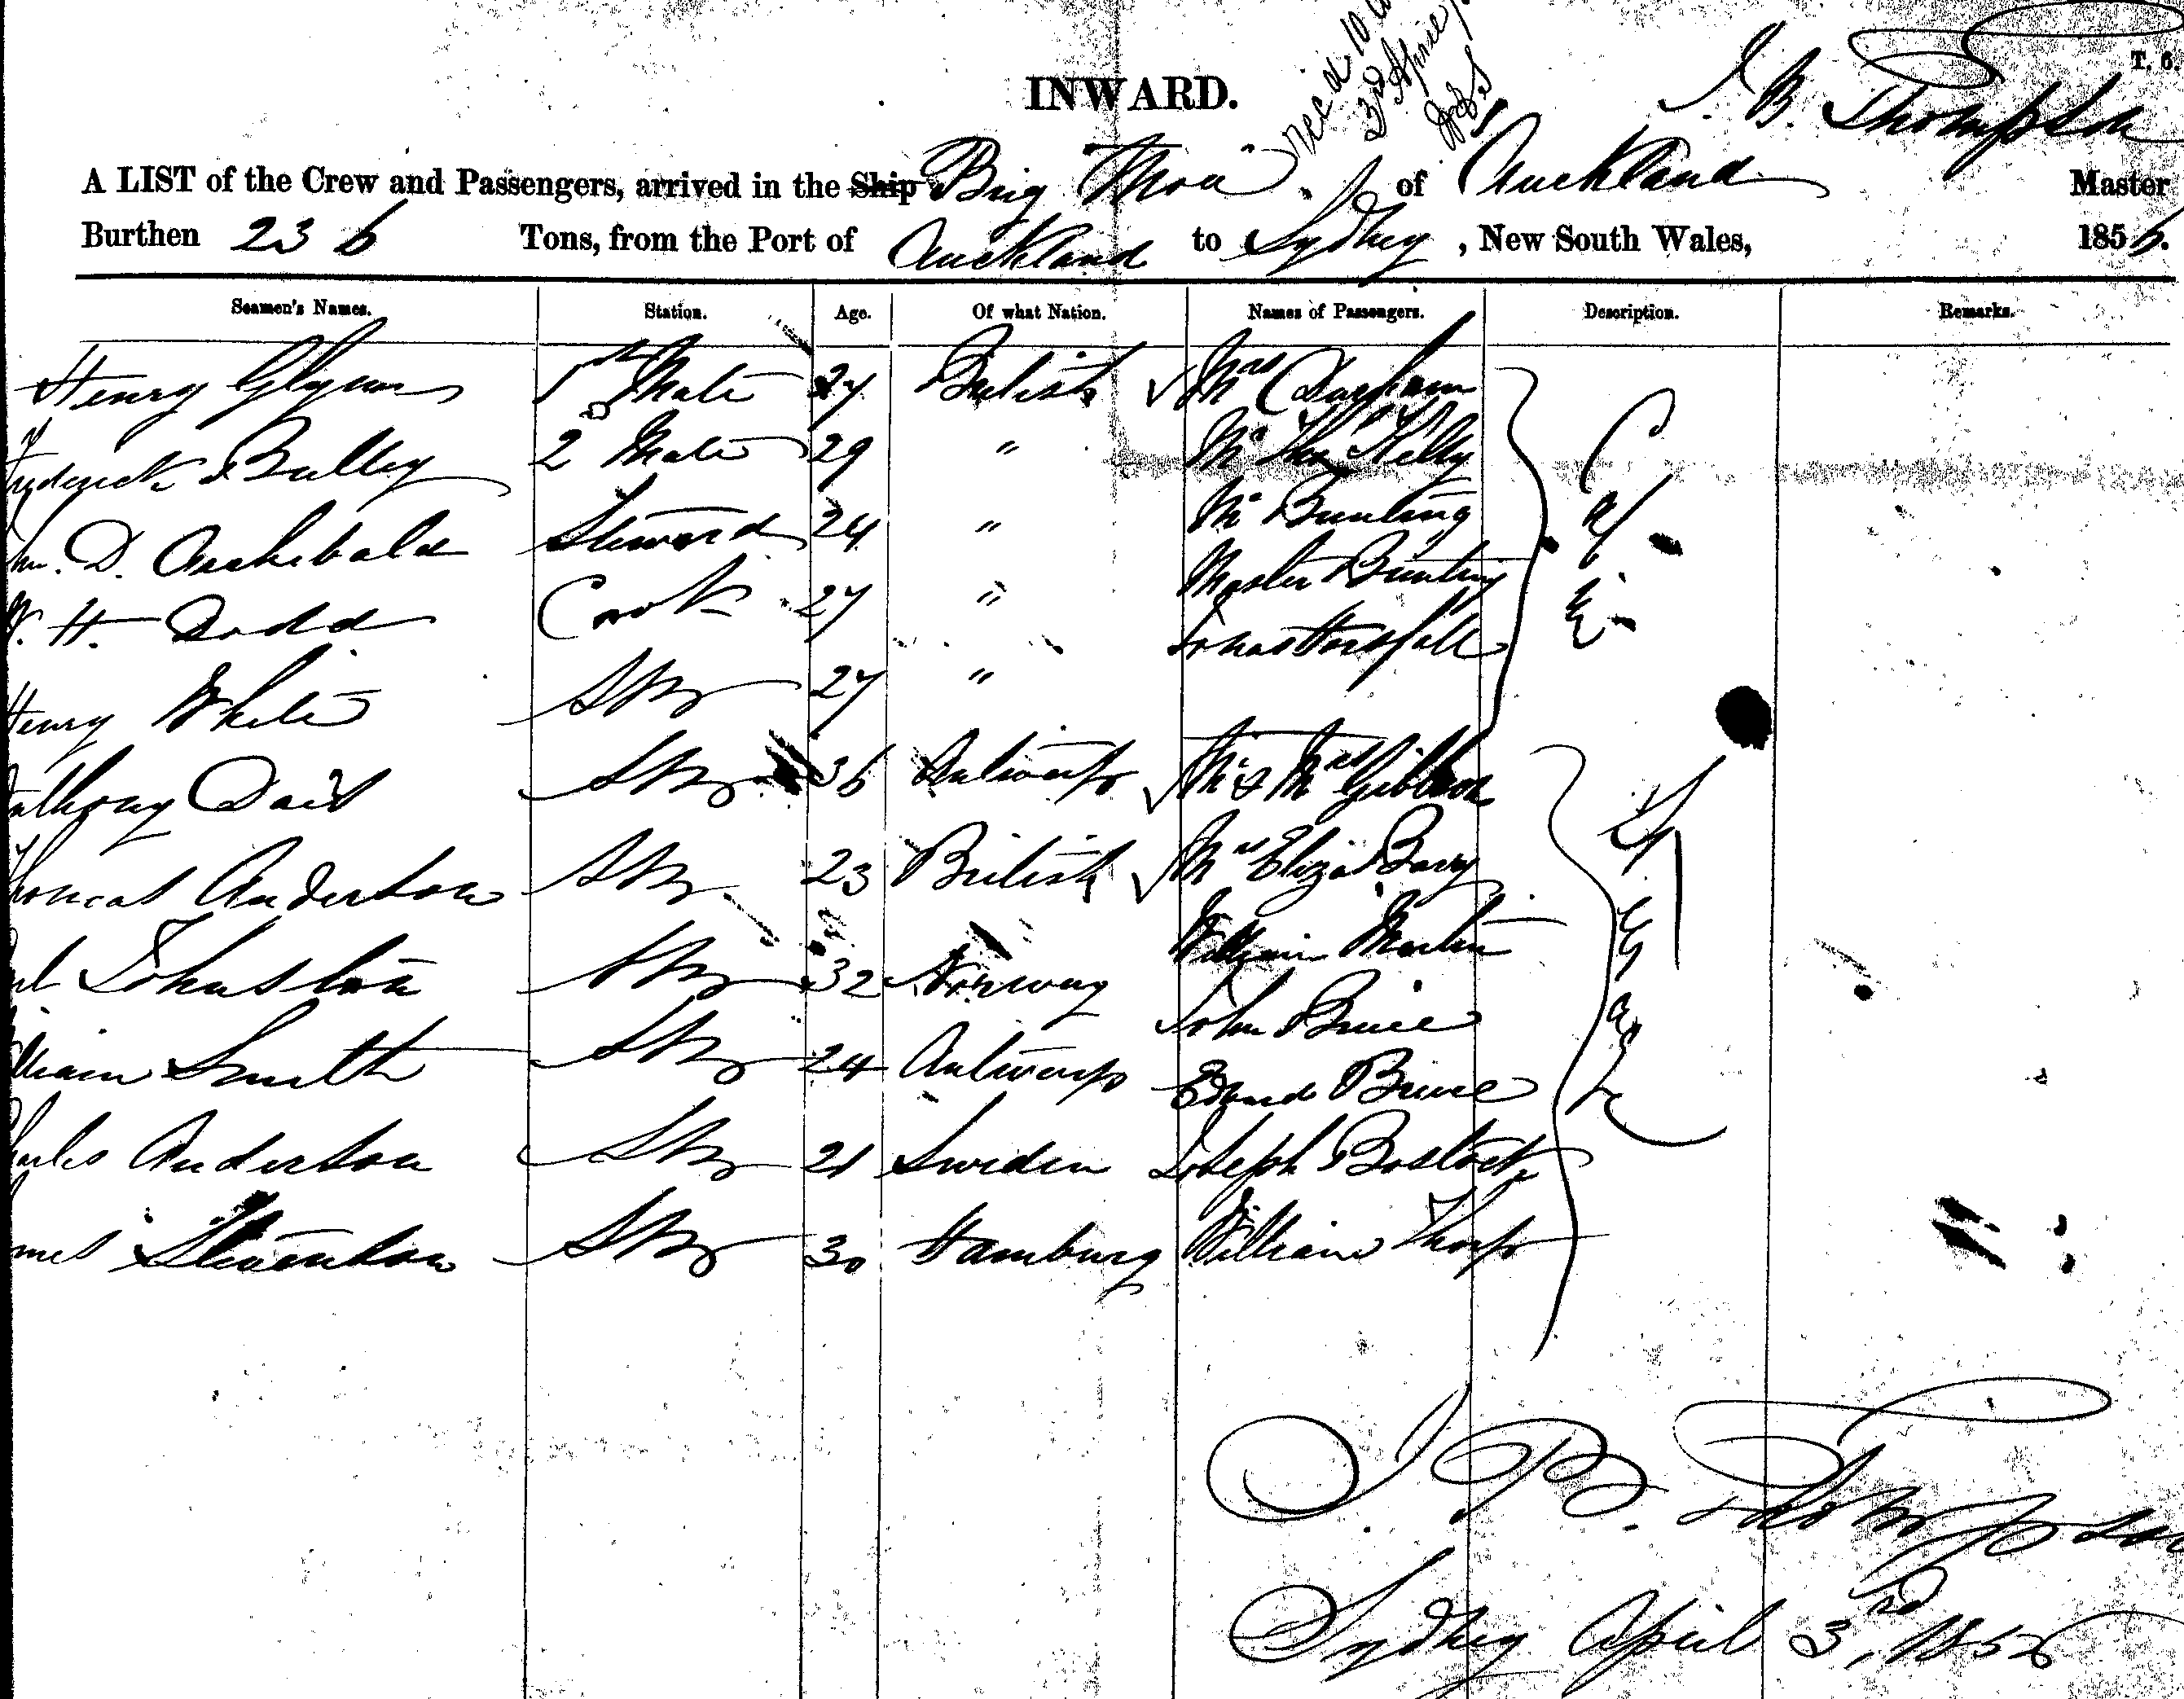 T. 6.
INWARD.
3rd April
J. B. Thompson
A LIST of the Crew and Passengers, arrived in the Ship Brig Moa of Auckland Master
Burthen 236 Tons, from the Port of Auckland to Sydney, New South Wales, 1856.
Seamen's Names. Station. Age. Of what Nation. Names of Passengers. Description. Remarks.
Henry Glynn 1st Mate 27 British Mrs
Frederick Bulley 2nd Mate 29 " Mr Thos Kelly
D. Archibald Steward 24 " Mr Bunting
W. H. Dodd Cook 27 " Master Bunting
Henry White AB 27 " Jonas Horsfall
Anthony Dait AB 36 Antwerp Mr & Mrs Gibbon
Thomas Anderson AB 23 British Mrs Eliza Barry
Johnston AB 32 Norway William Martin
William Smith AB 24 Antwerp John Bruce
Charles Anderson AB 21 Sweden Edward Bruce
James Stevenson AB 30 Hamburg Joseph Bostock
William Thorp
Cabin
Steerage
J. B. Thompson
Sydney April 3rd, 1856